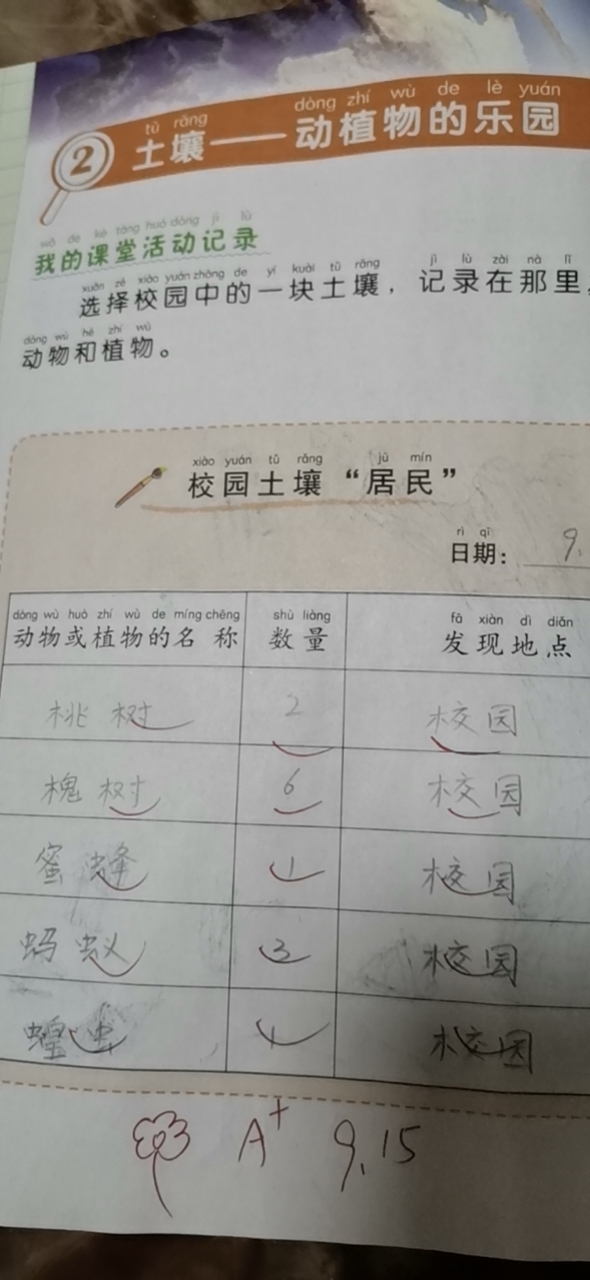 2
tǔ rǎng dòng zhí wù de lè yuán
土壤——动植物的乐园
wǒ de kè táng huó dòng jì lù
我的课堂活动记录
xuǎn zé xiào yuán zhōng de yí kuài tǔ rǎng jì lù zài nà lǐ
选择校园中的一块土壤，记录在那里
dòng wù hé zhí wù
动物和植物。
xiào yuán tǔ rǎng jū mín
校园土壤“居民”
rì qī
日期：9.
dòng wù huò zhí wù de míng chēng shù liàng fā xiàn dì diǎn
动物或植物的名称 数量 发现地点
桃树 2 校园
槐树 6 校园
蜜蜂 1 校园
蚂蚁 3 校园
蝗虫 1 校园
A+ 9.15